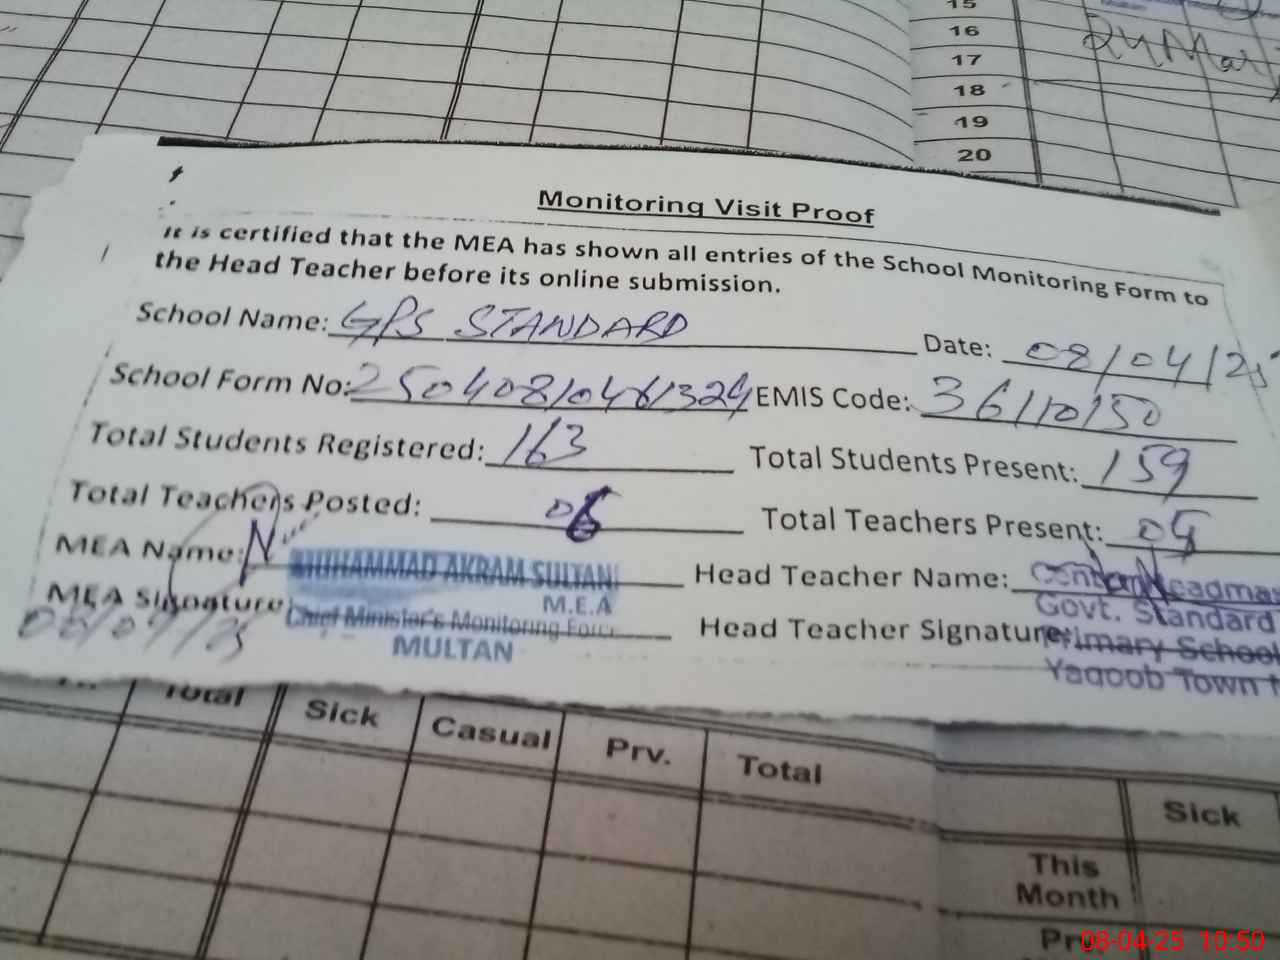 15
16
17
18
19
20
24 Mar
Monitoring Visit Proof
It is certified that the MEA has shown all entries of the School Monitoring Form to
the Head Teacher before its online submission.
School Name: GPS STANDARD Date: 08/04/25
School Form No: EMIS Code: 36110150
Total Students Registered: 163 Total Students Present: 159
Total Teachers Posted: Total Teachers Present:
MEA Name: MUHAMMAD AKRAM SULTAN Head Teacher Name: Headmas
M.E.A Govt. Standard
MEA Signature: Chief Minister's Monitoring Force Head Teacher Signature: Primary School
MULTAN Yaqoob Town
08/04/25
Total Sick Casual Prv. Total Sick
This
Month
08-04-25 10:50